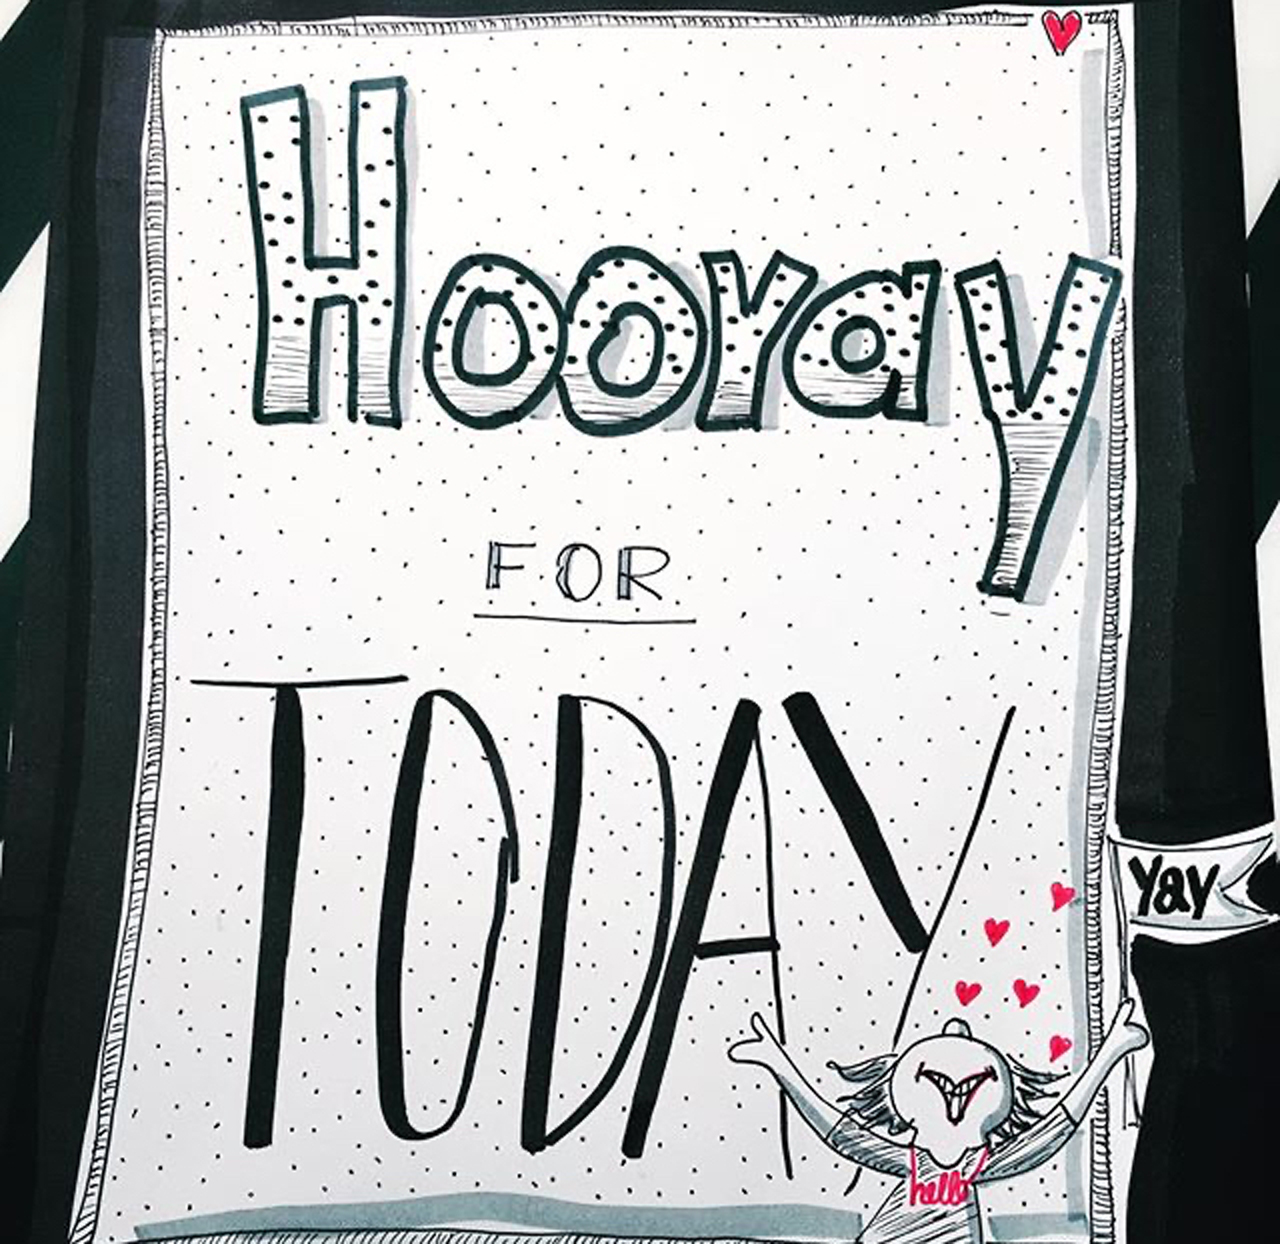 Hooray
FOR
TODAY
Yay
hello